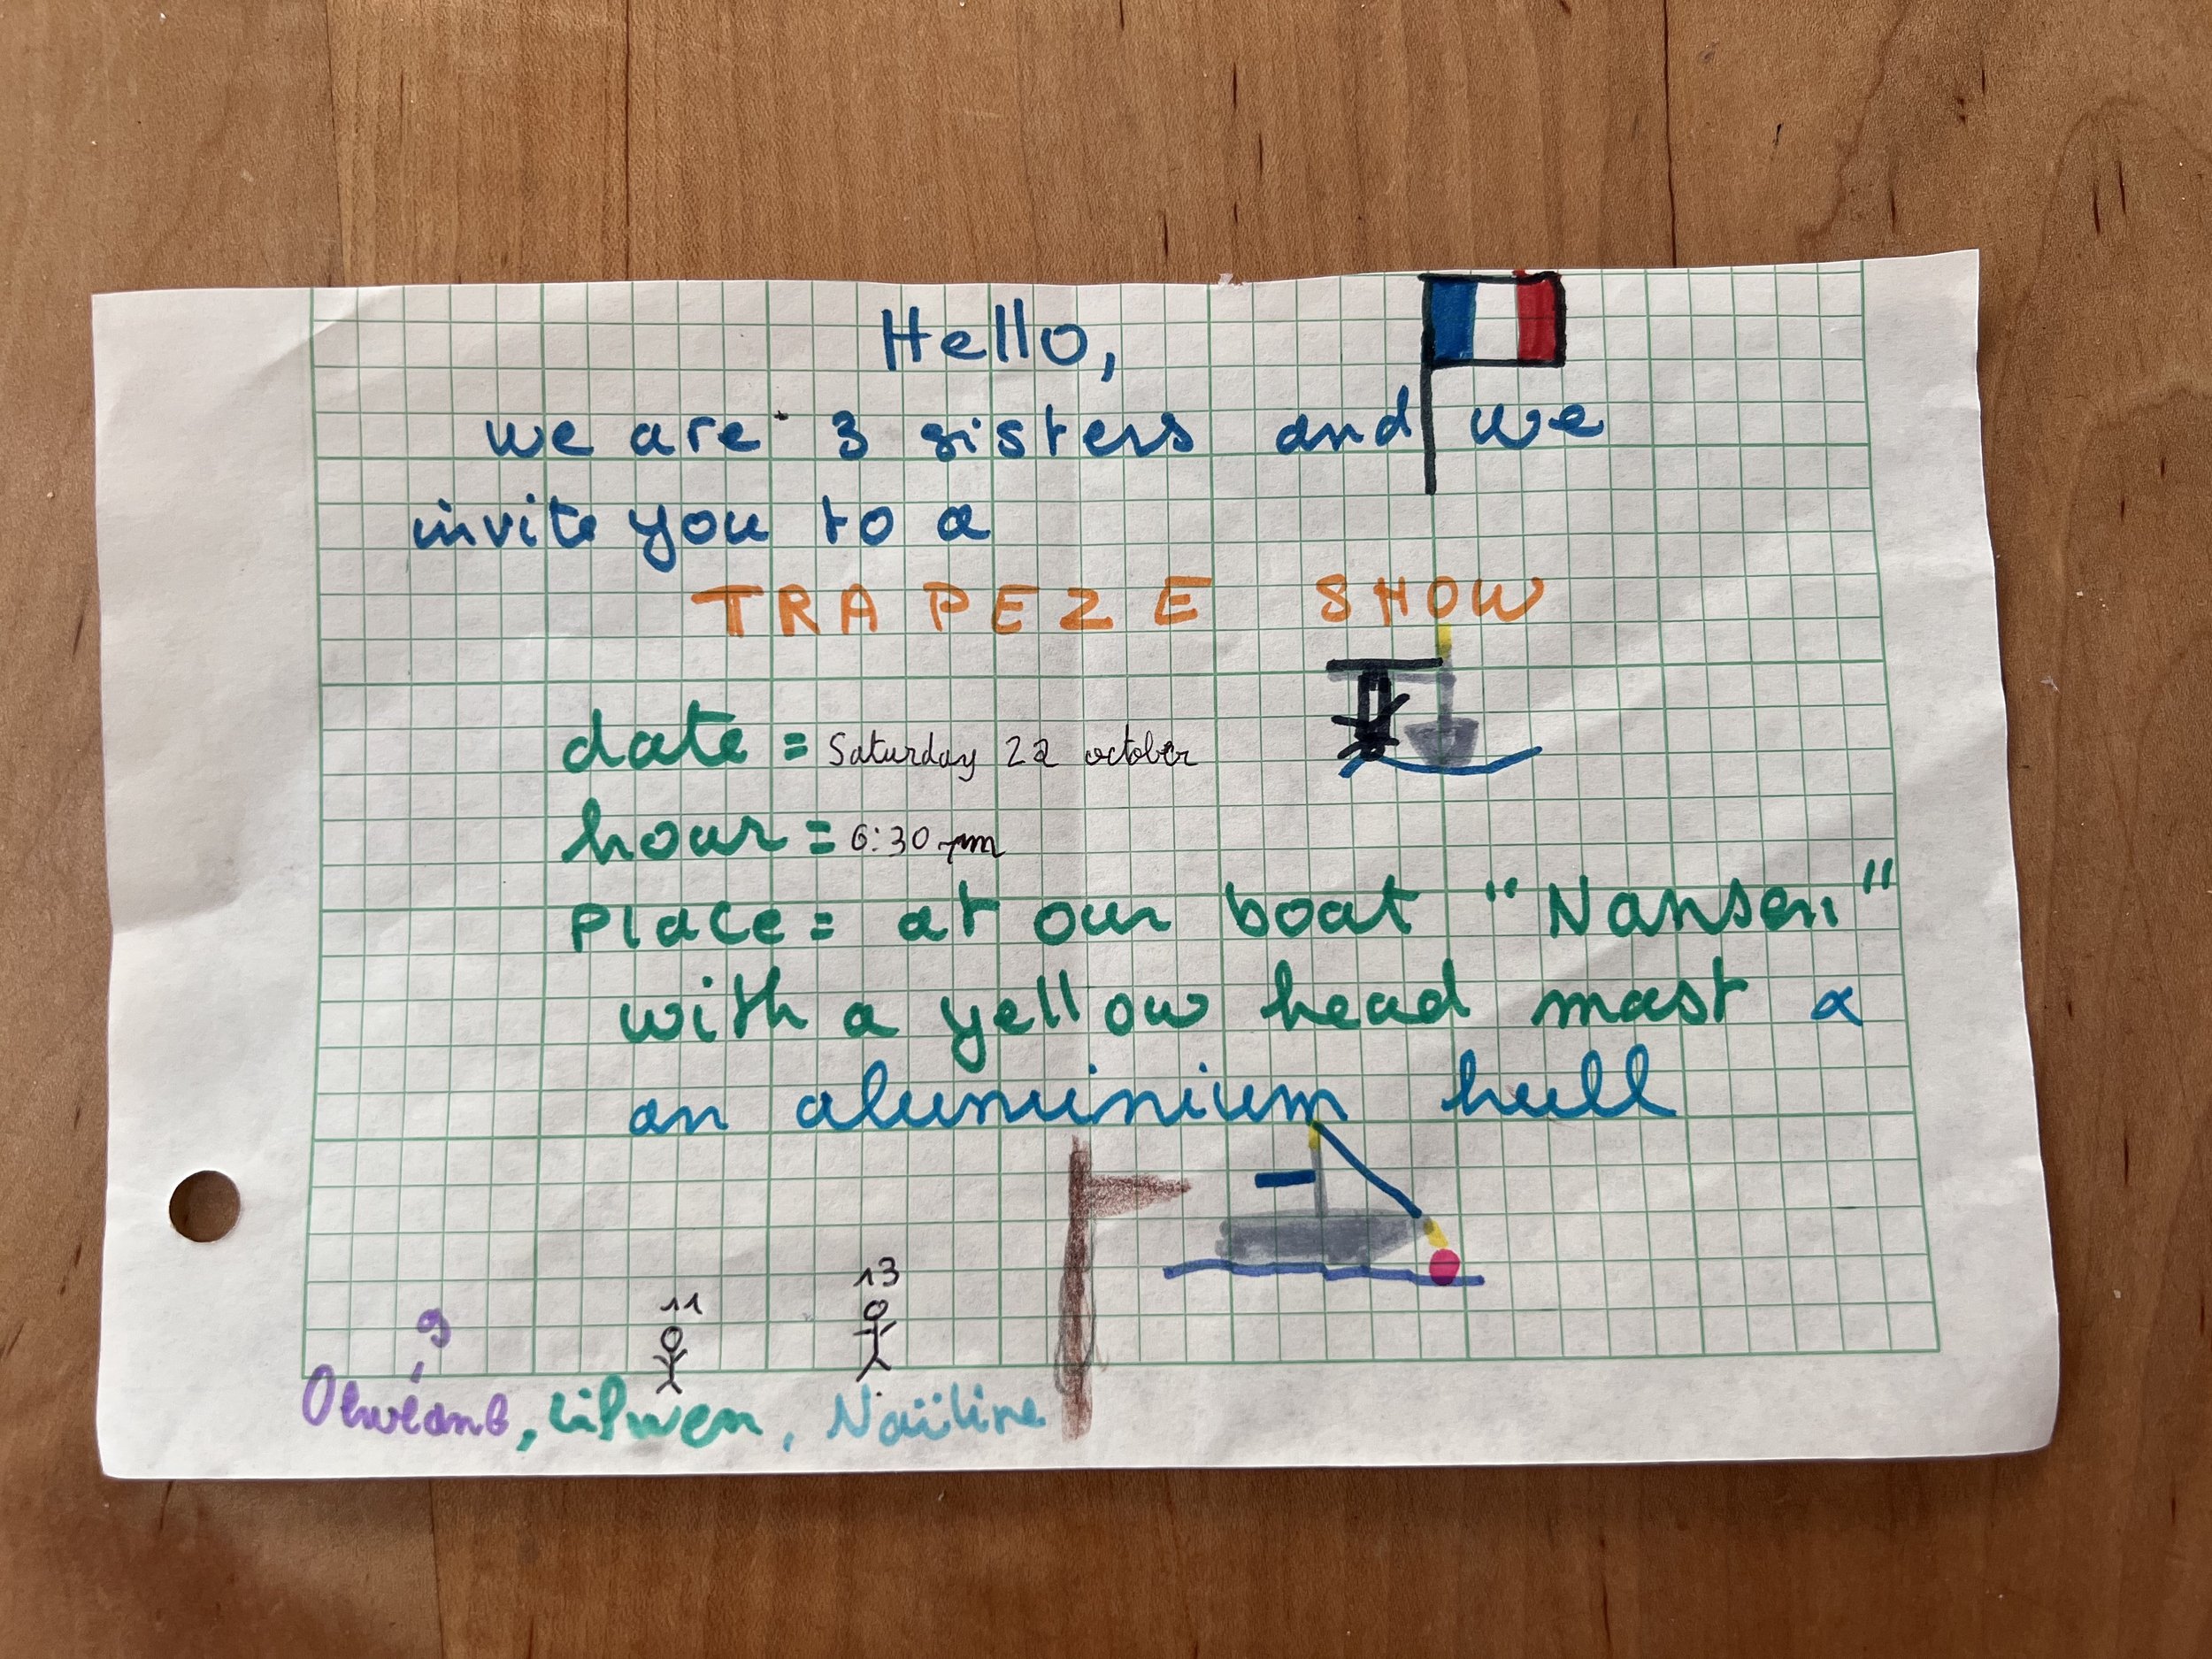 Hello,
we are 3 sisters and we
invite you to a
TRAPEZE SHOW
date = Saturday 22 october
hour = 6:30 pm
Place = at our boat "Nansen"
with a yellow head mast &
an aluminium hull
9 11 13
, Lilwen, Naïline